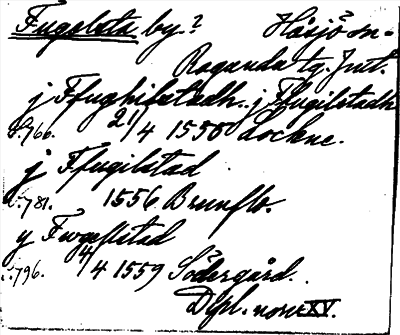 Fugelsta by? Håsjö sn=
Ragunda tg. Jmt.
j Ffughilstadh. j Ffugilstadh
s. 766. 21/4 1550 Lockne.
j Ffugilstad
s. 781. 1556 Brunflo.
y Fwgelstad
s. 796. 4/4 1559 Södergård.
Dipl. norv. XV.